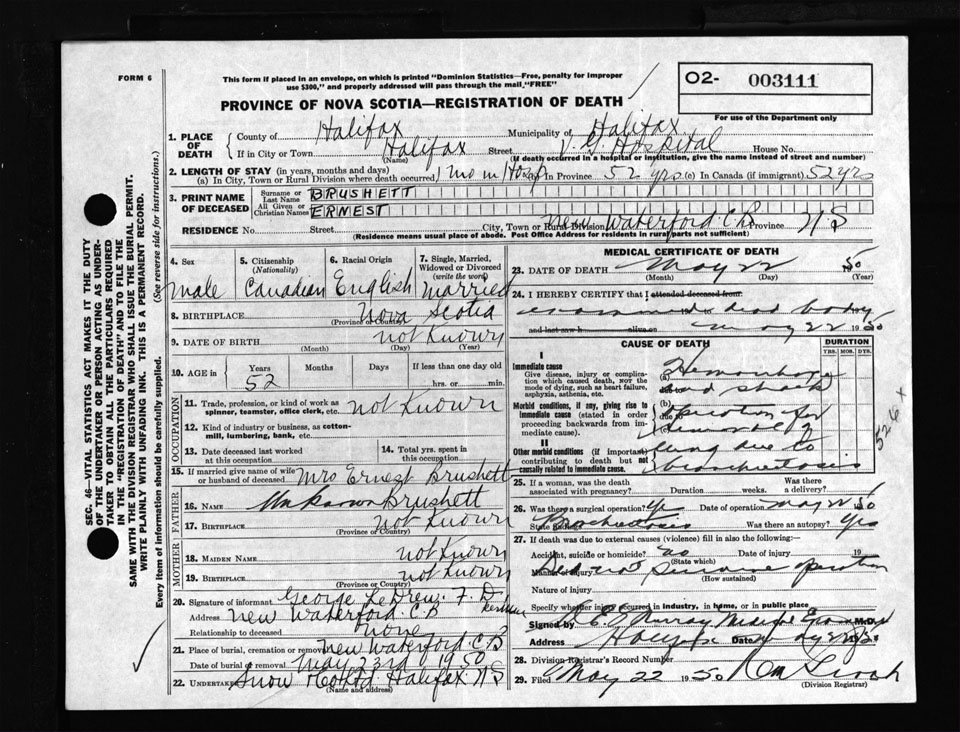 FORM 6
This form if placed in an envelope, on which is printed "Dominion Statistics—Free, penalty for improper
use $300," and properly addressed will pass through the mail "FREE"
PROVINCE OF NOVA SCOTIA—REGISTRATION OF DEATH
O2- 003111
For use of the Department only
1. PLACE OF DEATH
County of Halifax Municipality of Halifax
If in City or Town Halifax Street V. G Hospital House No.
(Name) (If death occurred in a hospital or institution, give the name instead of street and number)
2. LENGTH OF STAY (in years, months and days)
(a) In City, Town or Rural Division where death occurred 1 mo in Hosp In Province 52 yrs (c) In Canada (if immigrant) 52 yrs
3. PRINT NAME OF DECEASED
Surname or Last Name BRUSHETT
All Given or Christian Names ERNEST
RESIDENCE No. Street City, Town or Rural Division New Waterford C.B Province N.S
(Residence means usual place of abode. Post Office Address for residents in rural parts not sufficient)
4. Sex Male
5. Citizenship (Nationality) Canadian
6. Racial Origin English
7. Single, Married, Widowed or Divorced (write the word) Married
8. BIRTHPLACE Nova Scotia
(Province or Country)
9. DATE OF BIRTH not Known
(Month) (Day) (Year)
10. AGE in Years 52 Months Days If less than one day old hrs. or min.
OCCUPATION
11. Trade, profession, or kind of work as spinner, teamster, office clerk, etc. not Known
12. Kind of industry or business, as cotton-mill, lumbering, bank, etc.
13. Date deceased last worked at this occupation
14. Total yrs. spent in this occupation
15. If married give name of wife or husband of deceased Mrs Ernest Brushett
FATHER
16. NAME Unknown Brushett
17. BIRTHPLACE not Known
(Province or Country)
MOTHER
18. MAIDEN NAME not Known
19. BIRTHPLACE not Known
(Province or Country)
20. Signature of informant George LeDrew. F. D
Address New Waterford C.B
Relationship to deceased none
21. Place of burial, cremation or removal New Waterford C.B
Date of burial or removal May 23rd 1950
22. UNDERTAKER Snow Halifax N S
(Name and address)
MEDICAL CERTIFICATE OF DEATH
23. DATE OF DEATH May 22 1950
(Month) (Day) (Year)
24. I HEREBY CERTIFY that I attended deceased from
examined dead body
and last saw h alive on May 22 1950
CAUSE OF DEATH
DURATION
YRS. MOS. DYS.
I
Immediate cause
Give disease, injury or complication which caused death, not the mode of dying, such as heart failure, asphyxia, asthenia, etc.
(a) Hemorrhage and shock
Morbid conditions, if any, giving rise to immediate cause (stated in order proceeding backwards from immediate cause).
(b) operation for removal of
II
Other morbid conditions (if important) contributing to death but not causally related to immediate cause.
lung due to bronchiectosis
526 x
25. If a woman, was the death associated with pregnancy? Duration weeks. Was there a delivery?
26. Was there a surgical operation? Yes Date of operation May 22 50
State findings Was there an autopsy? Yes
27. If death was due to external causes (violence) fill in also the following:—
Accident, suicide or homicide? no Date of injury 19
(State which)
Manner of injury
(How sustained)
Nature of injury
Specify whether injury occurred in industry, in home, or in public place
Signed by Murray Medical Examiner M.D.
Address Halifax Date
28. Division Registrar's Record Number
29. Filed May 22 1950
(Division Registrar)
SEC. 46—VITAL STATISTICS ACT MAKES IT THE DUTY
OF THE UNDERTAKER OR PERSON ACTING AS UNDER-
TAKER TO OBTAIN ALL THE PARTICULARS REQUIRED
IN THE "REGISTRATION OF DEATH" AND TO FILE THE
SAME WITH THE DIVISION REGISTRAR WHO SHALL ISSUE THE BURIAL PERMIT.
WRITE PLAINLY WITH UNFADING INK. THIS IS A PERMANENT RECORD.
Every item of information should be carefully supplied. (See reverse side for instructions.)